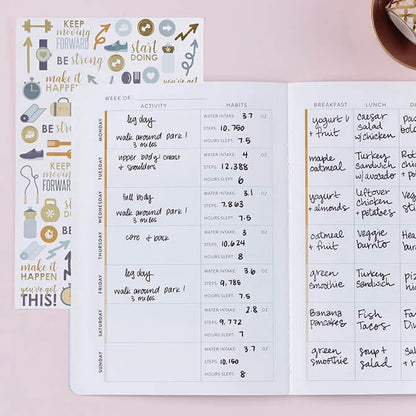 KEEP
moving
FORWARD
START
DOING
Be STRONG
make it
HAPPEN
you've got
Be STRONG
KEEP
moving
FORWARD
START
DOING
make it
HAPPEN
make it
HAPPEN
you've got
THIS!
WEEK OF:
ACTIVITY HABITS
MONDAY
leg day
walk around park!
3 miles
WATER INTAKE: 3.7 OZ
STEPS: 10.750
HOURS SLEPT: 7.5
TUESDAY
upper body/chest
+ shoulders
WATER INTAKE: 4 OZ
STEPS: 12.388
HOURS SLEPT: 6
WEDNESDAY
full body
walk around park!
3 miles
WATER INTAKE: 3.1 OZ
STEPS: 7.863
HOURS SLEPT: 7.5
THURSDAY
core + back
WATER INTAKE: 3 OZ
STEPS: 10.624
HOURS SLEPT: 8
FRIDAY
leg day
walk around park!
3 miles
WATER INTAKE: 3.6 OZ
STEPS: 9,785
HOURS SLEPT: 7.5
SATURDAY
WATER INTAKE: 2.8 OZ
STEPS: 9.772
HOURS SLEPT: 7
SUNDAY
WATER INTAKE: 3.7 OZ
STEPS: 10.150
HOURS SLEPT: 8
BREAKFAST LUNCH
yogurt
+ fruit
caesar
salad
w/chicken
maple
oatmeal
Turkey
Sandwich
w/avocado
yogurt
+ almonds
leftover
chicken
+ potatoes
oatmeal
+ fruit
Veggie
burrito
green
smoothie
Turkey
Sandwich
Banana
pancakes
Fish
Tacos
green
smoothie
soup +
salad